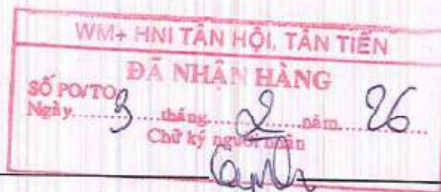 WM+ HNI TÂN HỘI, TÂN TIẾN
ĐÃ NHẬN HÀNG
SỐ PO/TO
Ngày 3 tháng 2 năm 26
Chữ ký người nhận